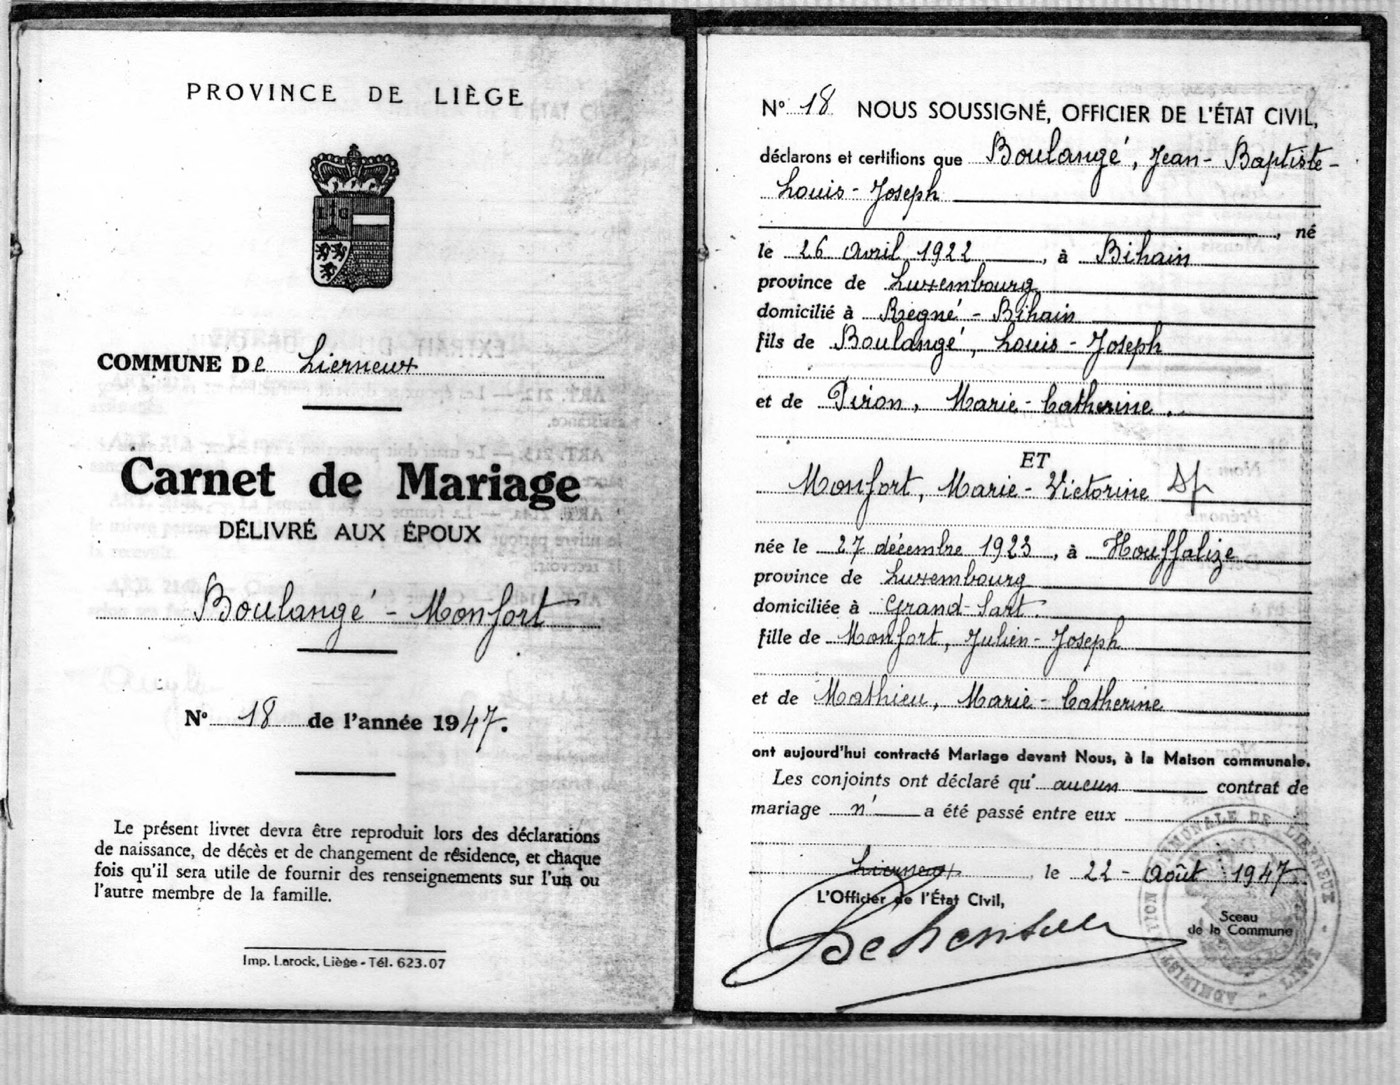 PROVINCE DE LIÈGE
LIG
COMMUNE De Lierneux
Carnet de Mariage
DÉLIVRÉ AUX ÉPOUX
Boulangé - Monfort
N° 18 de l'année 1947.
Le présent livret devra être reproduit lors des déclarations
de naissance, de décès et de changement de résidence, et chaque
fois qu'il sera utile de fournir des renseignements sur l'un ou
l'autre membre de la famille.
Imp. Larock, Liège - Tél. 623.07
N° 18 NOUS SOUSSIGNÉ, OFFICIER DE L'ÉTAT CIVIL,
déclarons et certifions que Boulangé, Jean-Baptiste-
Louis-Joseph
, né
le 26 avril 1922, à Bihain
province de Luxembourg
domicilié à Regné-Bihain
fils de Boulangé, Louis-Joseph
et de Piron, Marie-Catherine.
ET
Monfort, Marie-Victorine Sp
née le 27 décembre 1923, à Houffalize
province de Luxembourg
domiciliée à Grand-Sart.
fille de Monfort, Julien-Joseph
et de Mathieu, Marie-Catherine
ont aujourd'hui contracté Mariage devant Nous, à la Maison communale.
Les conjoints ont déclaré qu' aucun contrat de
mariage n' a été passé entre eux
Lierneux, le 22 - août 1947.
L'Officier de l'État Civil,
Sceau
de la Commune
ADMINISTRATION COMMUNALE DE LIERNEUX